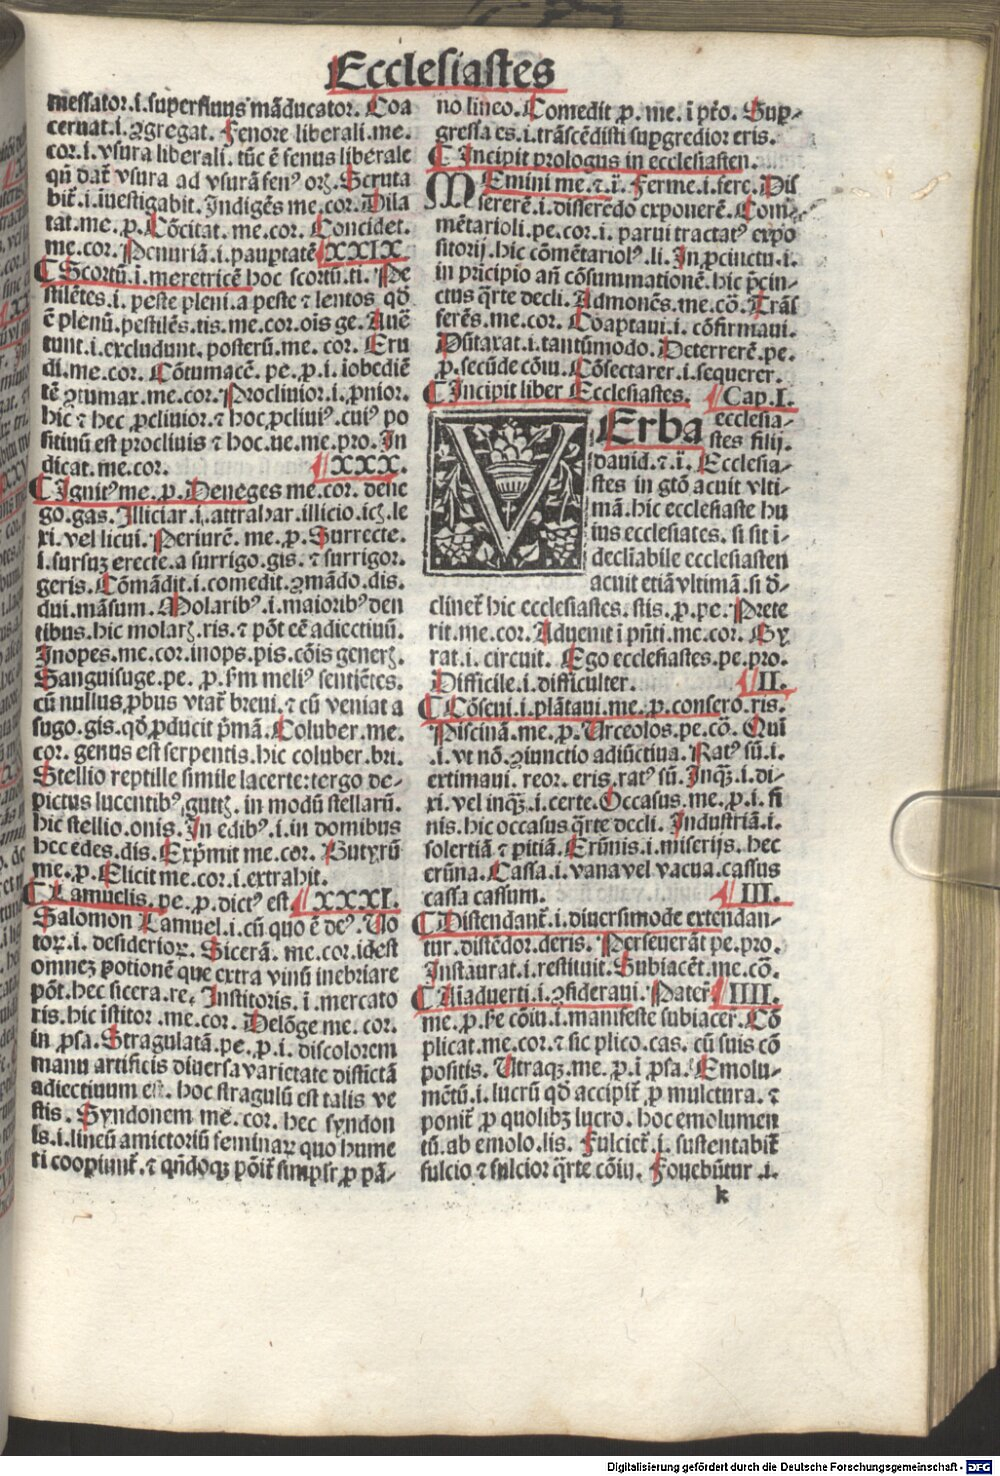 Ecclesiastes
messator.i.superfluus mãducator. Coa
ceruat.i.ꝯgregat. Fenore liberali.me.
cor.i.vsura liberali. tũc ẽ fenus liberale
qñ dať vsura ad vsurã fenꝰ orꝫ. Scruta
biť.i.ĩuestigabit. Indigẽs me.cor. Dila
tat.me.p. Cõcitat.me.cor. Concidet.
me.cor. Penuriã.i.pauptatẽ XXIX
Scortũ.i.meretricẽ hoc scortũ.ti. Pe
stilẽtes.i.peste pleni.a peste ⁊ lentos qđ
ẽ plenũ.pestilẽs.tis.me.cor.ois ge. Auẽ
tunt.i.excludunt.posterũ.me.cor. Eru
di.me.cor. Cõtumacẽ.pe.p.i.iobediẽ
tẽ ꝯtumax.me.cor. Proclinior.i.pnior.
hic ⁊ hec ꝓcliuior.⁊ hoc ꝓcliuiꝰ.cuiꝰ po
sitiuũ est procliuis ⁊ hoc.ue.me.pro. In
dicat.me.cor. XXX.
Ignitꝰ me.p. Deneges me.cor. dene
go.gas. Illiciar.i.attrahar.illicio.icꝫ.le
xi.vel licui. Periurẽ.me.p. Surrecte.
i.sursuꝫ erecte.a surrigo.gis.⁊ surrigor.
geris. Cõmãdit.i.comedit.ꝯmãdo.dis.
dui.mãsum. Molaribꝰ.i.maioribꝰ den
tibus.hic molarꝫ.ris.⁊ põt eẽ adiectiuũ.
Inopes.me.cor.inops.pis.cõis generꝫ.
Sanguisuge.pe.p.ħm meliꝰ sentiẽtes.
cũ nullus ꝓbus vtať breui.⁊ cũ veniat a
sugo.gis.qđ ꝓducit p̃mã. Coluber.me.
cor. genus est serpentis.hic coluber.bri.
Stellio reptille simile lacerte:tergo de-
pictus lucentibꝰ guttꝫ.in modũ stellarũ.
hic stellio.onis. In edibꝰ.i.in domibus
hec edes.dis. Exp̃mit me.cor. Butyrũ
me.p. Elicit me.cor.i.extrahit.
Lamuelis.pe.p.dictꝰ est XXXI.
Salomon Lamuel.i.cũ quo ẽ deꝰ. Uo
toꝝ.i.desiderioꝝ. Sicerã.me.cor.idest
omneꝫ potionẽ que extra vinũ inebriare
põt.hec sicera.re. Institoris.i.mercato
ris.hic ĩstitor.me.cor. Delõge me.cor.
in ꝓsa. Stragulatã.pe.p.i.discolorem
manu artificis diuersa varietate distictã
adiectiuum est.hoc stragulũ est talis ve
stis. Syndonem me.cor.hec syndon
is.i.lineũ amictoriũ feminaꝝ quo hume
ti cooꝑiunť.⁊ qñdoqꝫ põiť simplr ꝓ pã-
no lineo. Comedit p.me.i pto. Sup-
gressa es.i.trãscẽdisti supgredior eris.
Incipit prologus in ecclesiasten.
MEmini me.⁊.ĩ. Ferme.i.fere. Dis
sererẽ.i.disseredo exponerẽ. Com-
mẽtarioli.pe.cor.i.parui tractatꝰ expo
sitorij.hic cõmẽtariolꝰ.li. In ꝓcinctu.i.
in pricipio añ cõsummationẽ.hic p̃cin-
ctus q̃rte decli. Admonẽs.me.cõ. Trãs
ferẽs.me.cor. Coaptaui.i.cõfirmaui.
Dũtaxat.i.tantũmodo. Deterrerẽ.pe.
p.secũde cõiu. Cõsectarer.i.sequerer.
Incipit liber Ecclesiastes. Cap.I.
VErba ecclesia-
stes filij.
dauid.⁊.ĩ. Ecclesia-
stes in gtõ acuit vlti-
mã.hic ecclesiaste hu
ius ecclesiates.si sit i-
decliabile ecclesiasten
acuit etiã vltimã.si đ-
clineť hic ecclesiastes.stis.p.pe. Prete
rit.me.cor. Aduenit i pñti.me.cor. Gy
rat.i.circuit. Ego ecclesiastes.pe.pro.
Difficile.i.difficulter. II.
Cõseui.i.plãtaui.me.p.consero.ris.
Piscinã.me.p. Urceolos.pe.cõ. Qui
.i.vt nõ.ꝯiunctio adiũctiua. Ratꝰ sũ.i.
extimaui.reor.eris.ratꝰ sũ. Inqꝫ.i.di-
xi.vel inqꝫ.i.certe. Occasus.me.p.i.fi
nis.hic occasus q̃rte decli. Industriã.i.
solertiã ⁊ pitiã. Erũnis.i.miserijs.hec
erũna. Cassa.i.vana vel vacua.cassus
cassa cassum. III.
Distendanť.i.diuersimode extendan-
tur.distẽdor.deris. Perseuerãt pe.pro.
Instaurat.i.restituit. Subiacẽt.me.cõ.
Aiaduerti.i.ꝯsideraui. Pateř IIII.
me.p.ħe cõiu.i.manifeste subiacer. Cõ
plicat.me.cor.⁊ sic plico.cas.cũ suis cõ
positis. Utraqꝫ.me.p.i ꝓsa. Emolu-
mẽtũ.i.lucrũ qđ accipiť ꝓ mulctura.⁊
poniť ꝓ quolibꝫ lucro.hoc emolumen
tũ.ab emolo.lis. Fulcieť.i.sustentabiť
fulcio ⁊ fulcior q̃rte cõiu. Fouebũtur.i.
k
Digitalisierung gefördert durch die Deutsche Forschungsgemeinschaft - DFG